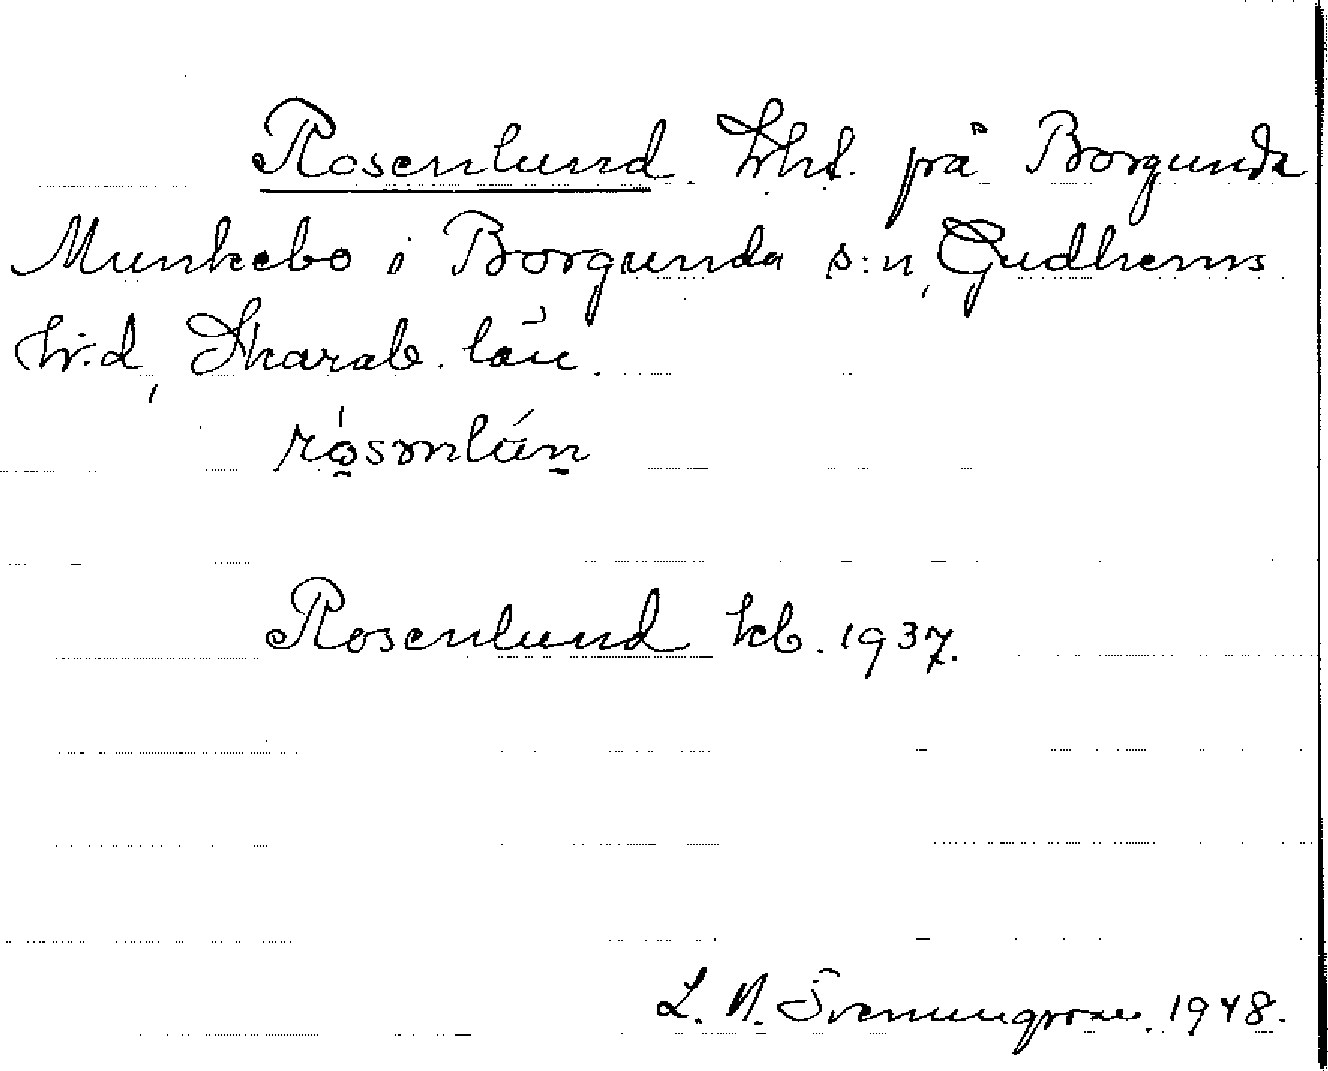 Rosenlund. Lht. på Borgunda
Munkebo i Borgunda s:n, Gudhems
hr.d, Skarab. län.
rósənlún
Rosenlund kb. 1937.
L. N. Svenungsson. 1948.